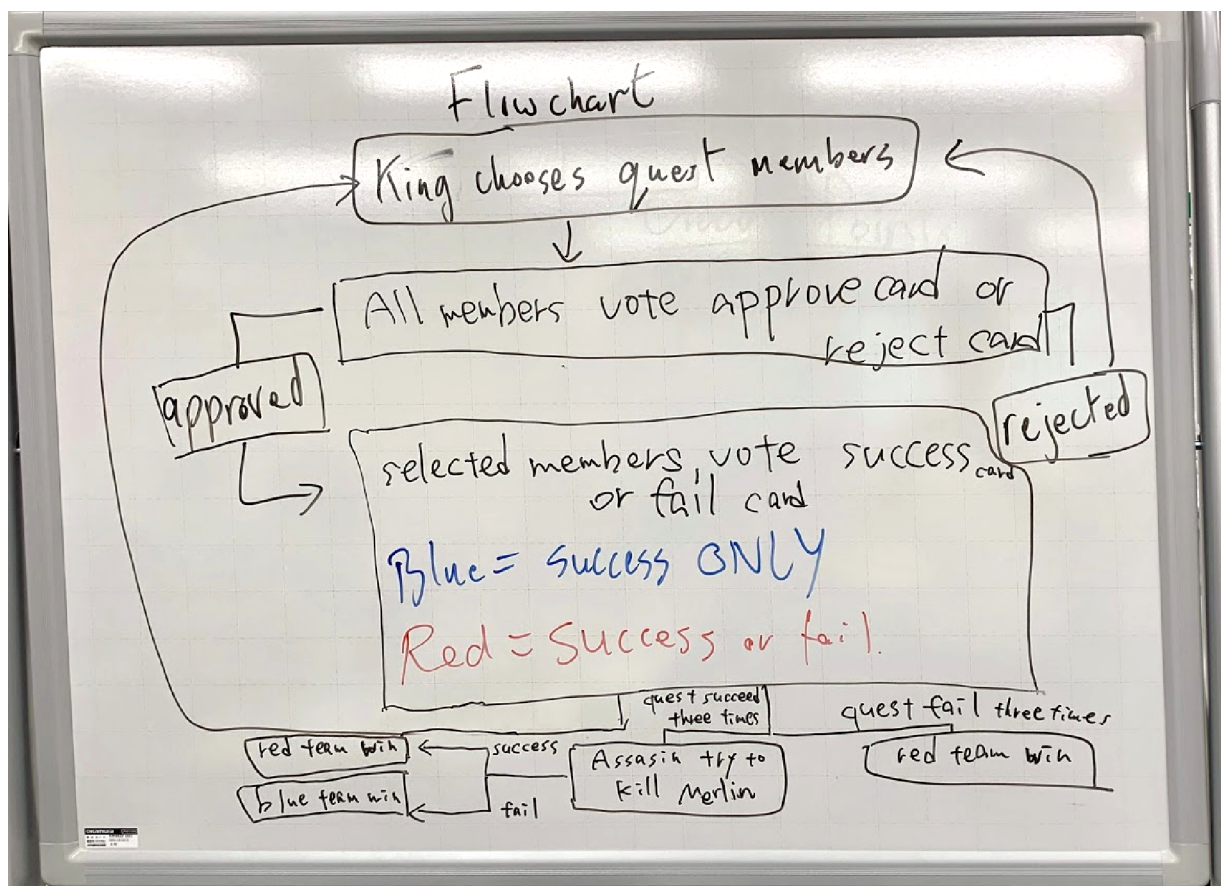 Fliwchart
King chooses quest members
All members vote approve card or
reject card
approved
rejected
selected members, vote success card
or fail card
Blue = success ONLY
Red = success or fail.
quest succeed
three times
quest fail three times
red team win
success
Assasin try to
kill Merlin
red team win
blue team win
fail